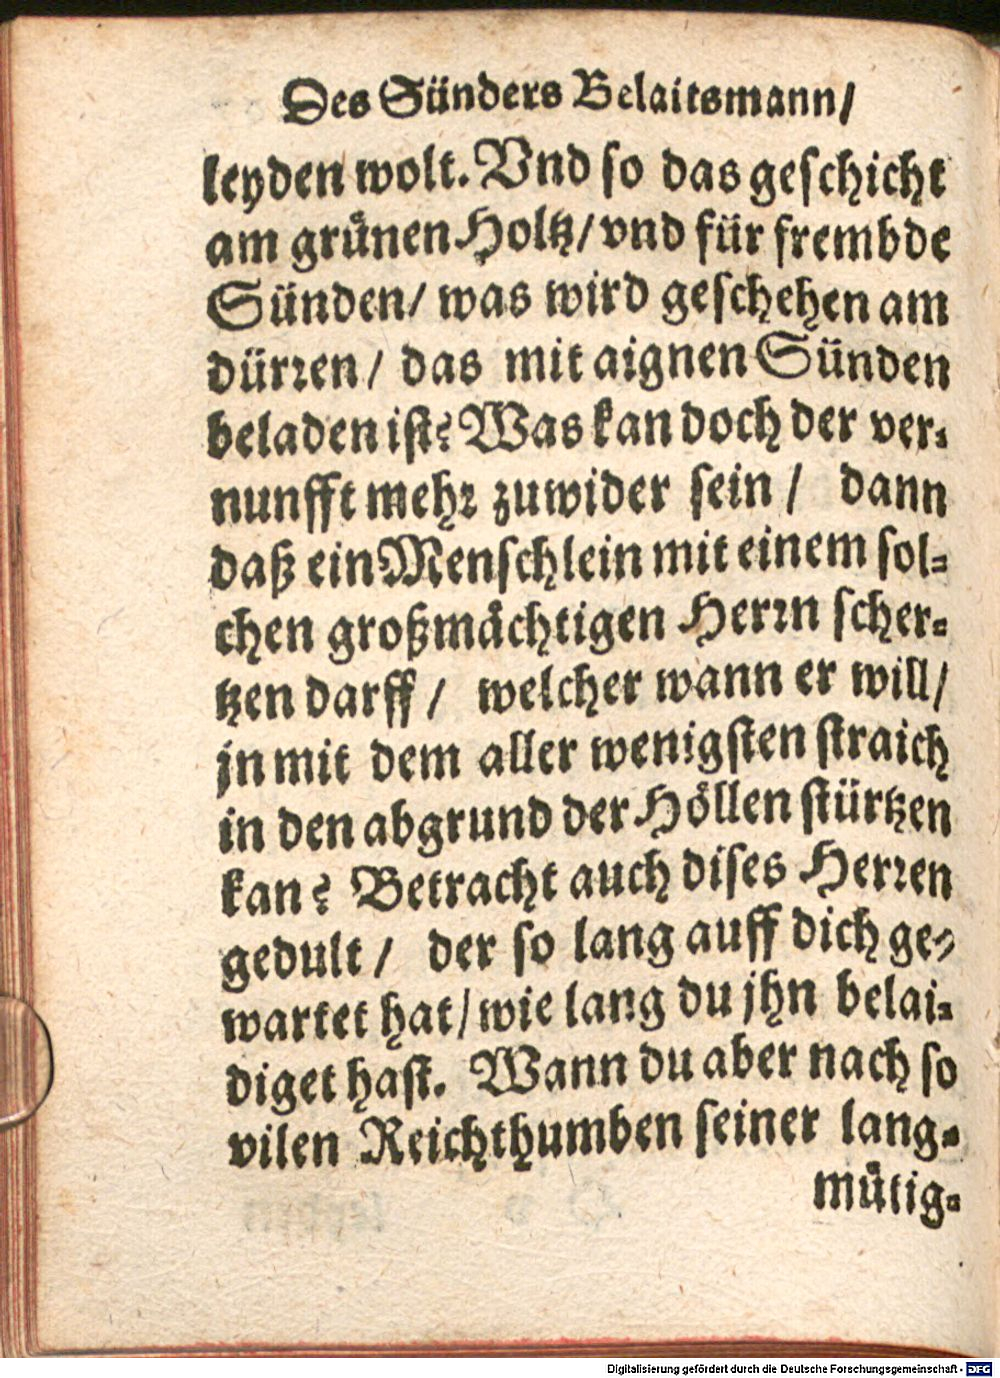 Des Sünders Belaitsmann/
leyden wolt. Vnd so das geschicht
am grůnen Holtz/ vnd für frembde
Sünden/ was wird geschehen am
dürren/ das mit aignen Sünden
beladen ist? Was kan doch der ver-
nunfft mehr zuwider sein/ dann
daß ein Menschlein mit einem sol-
chen großmåchtigen Herrn scher-
tzen darff/ welcher wann er will/
jn mit dem aller wenigsten straich
in den abgrund der Höllen stürtzen
kan? Betracht auch dises Herren
gedult/ der so lang auff dich ge-
wartet hat/ wie lang du jhn belai-
diget hast. Wann du aber nach so
vilen Reichthumben seiner lang-
můtig-
Digitalisierung gefördert durch die Deutsche Forschungsgemeinschaft - DFG